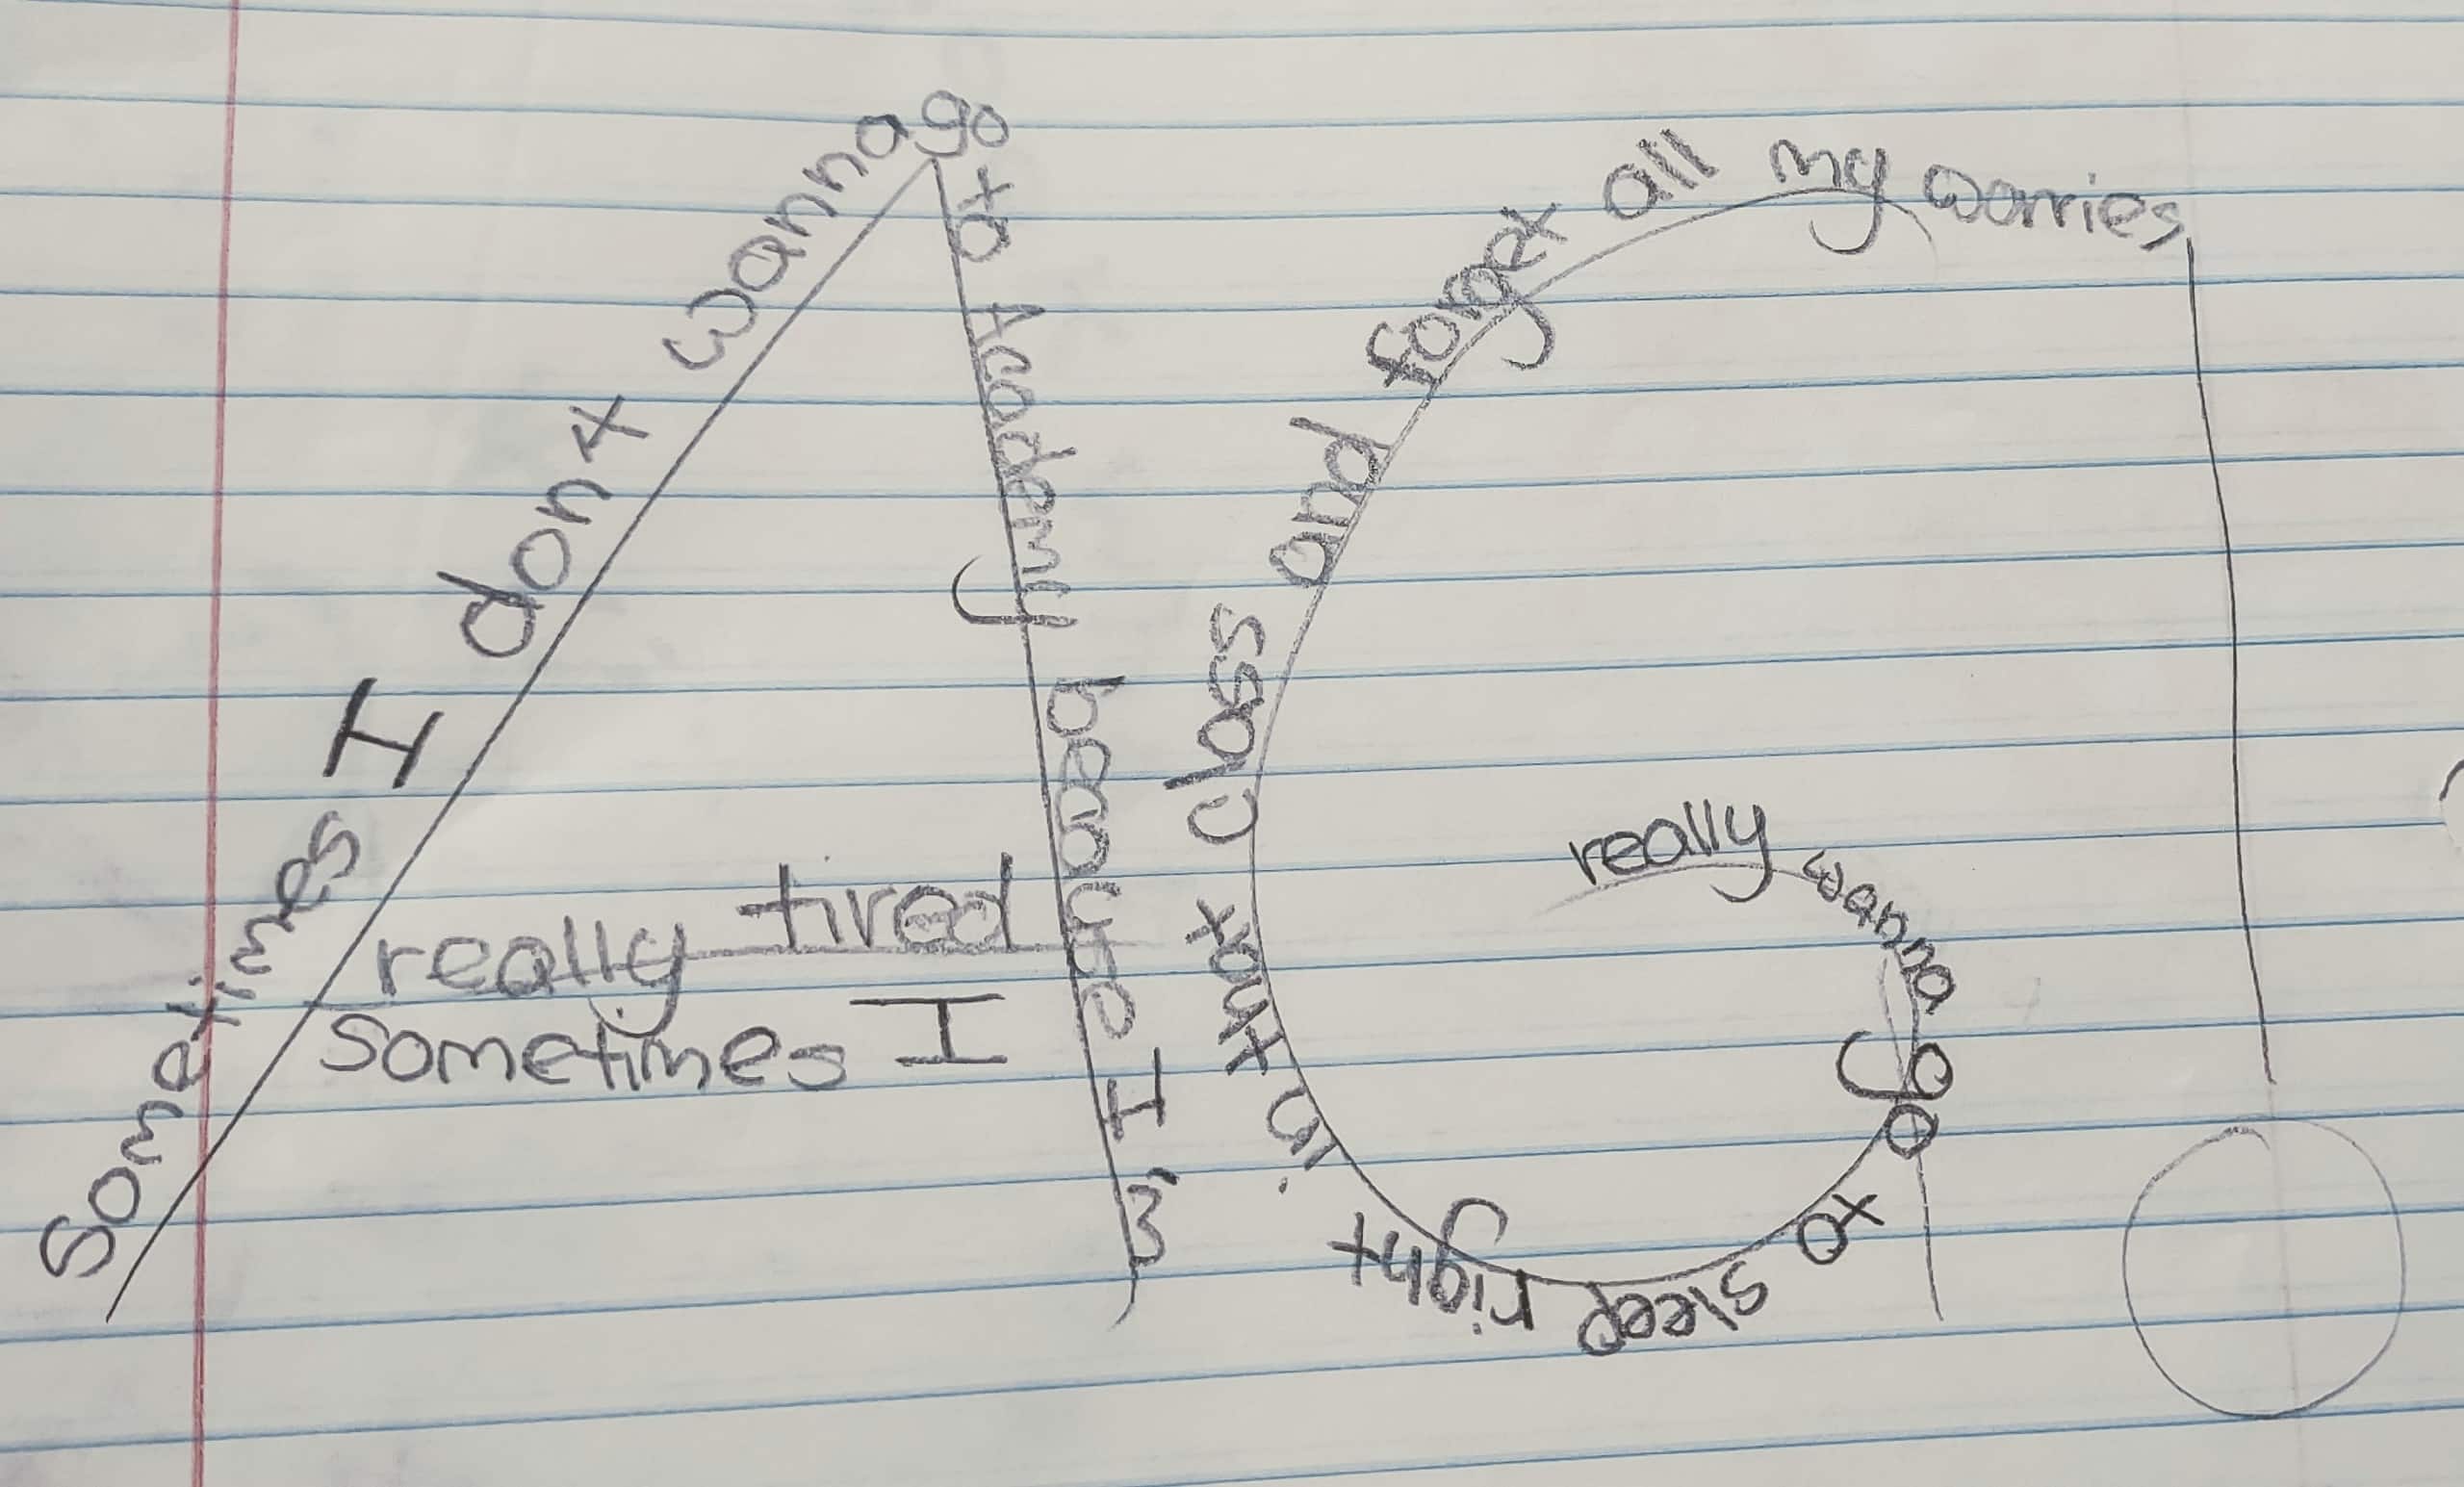 Sometimes I dont wanna go
to Academy because I'm
really tired
sometimes I
really wanna go to sleep right in that class and forget all my worries